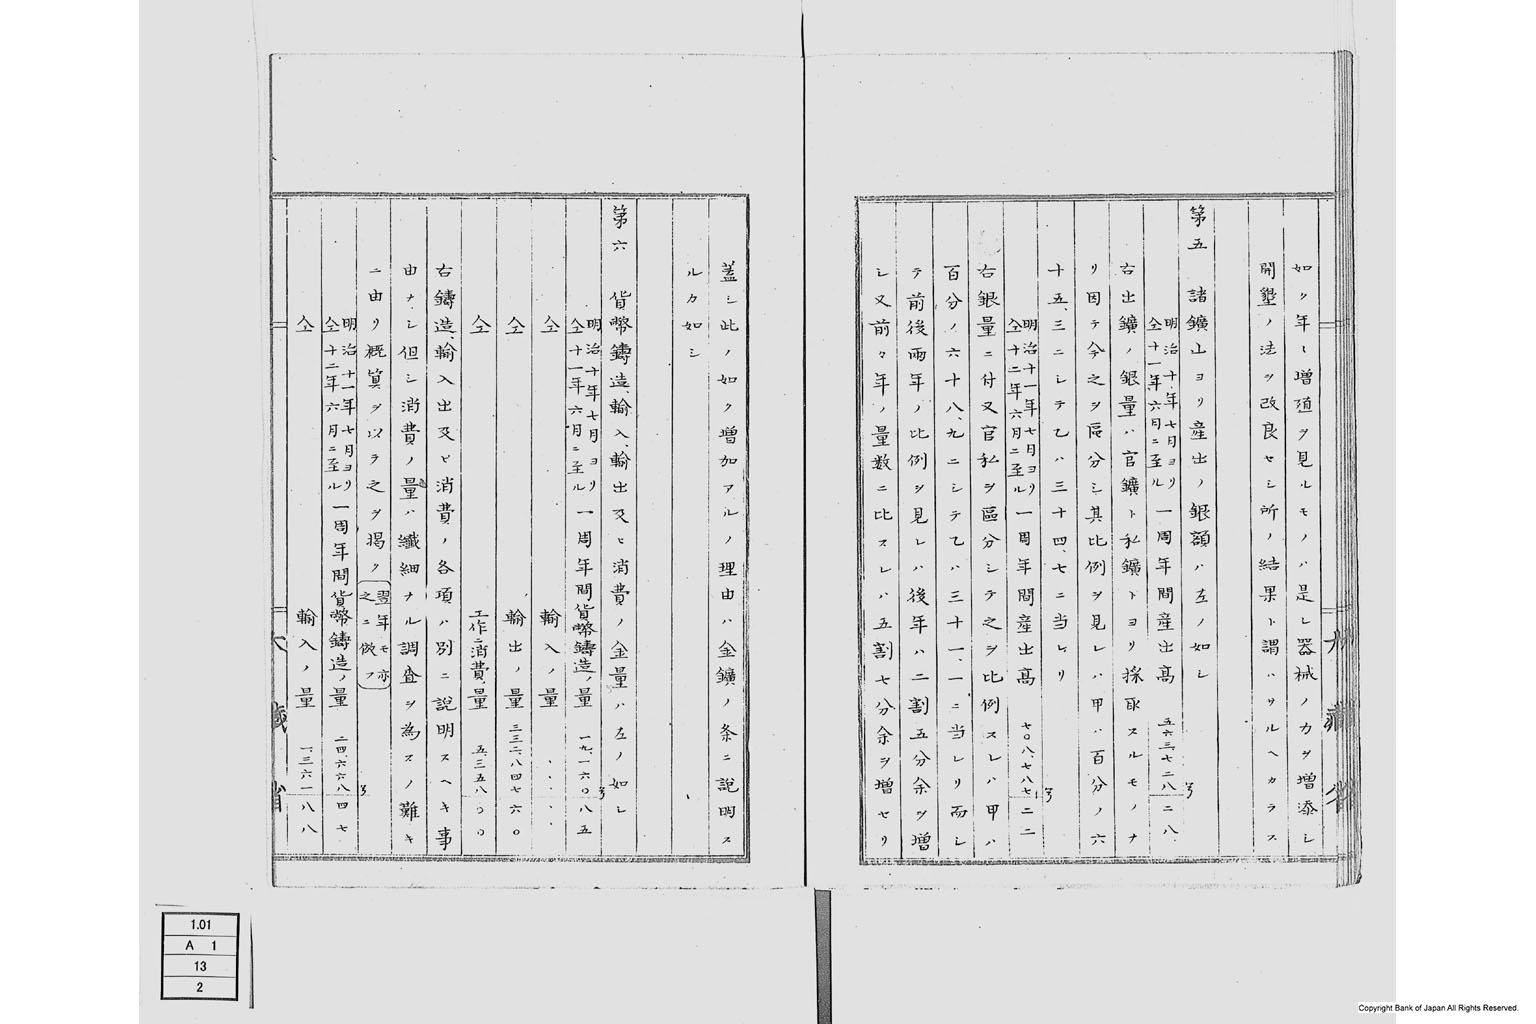 如ク年〻増殖ヲ見ルモノハ是レ器械ノ力ヲ増添シ
開墾ノ法ヲ改良セシ所ノ結果ト謂ハサルヘカラス
第五 諸鑛山ヨリ産出ノ銀額ハ左ノ如シ
明治十年七月ヨリ
仝十一年六月ニ至ル
一周年間産出高 五六三、七二八二八
右出鑛ノ銀量ハ官鑛ト私鑛トヨリ採取スルモノナ
リ因テ今之ヲ區分シ其比例ヲ見レハ甲ハ百分ノ六
十五、三ニシテ乙ハ三十四、七ニ当レリ
明治十一年七月ヨリ
仝十二年六月ニ至ル
一周年間産出高 七〇八、七八七二二
右銀量ニ付又官私ヲ區分シテ之ヲ比例スレハ甲ハ
百分ノ六十八、九ニシテ乙ハ三十一、一ニ当レリ而シ
テ前後両年ノ比例ヲ見レハ後年ハ二割五分余ヲ増
シ又前々年ノ量数ニ比スレハ五割七分余ヲ増セリ
蓋シ此ノ如ク増加アルノ理由ハ金鑛ノ条ニ説明ス
ルカ如シ
第六 貨幣鑄造、輸入、輸出及ヒ消費ノ金量ハ左ノ如シ
明治十年七月ヨリ
仝十一年六月ニ至ル
一周年間貨幣鑄造ノ量 一九、一六〇八五
仝 輸入ノ量 ・・・・
仝 輸出ノ量 三三二、八四七六〇
仝 工作ニ消費量 五、三五八〇〇
右鑄造、輸入出及ヒ消費ノ各項ハ別ニ説明スヘキ事
由ナシ但シ消費ノ量ハ纎細ナル調査ヲ為スノ難キ
ニ由リ概算ヲ以テ之ヲ掲ク
翌年モ亦
之ニ倣フ
明治十一年七月ヨリ
仝十二年六月ニ至ル
一周年間貨幣鑄造ノ量 二四、六六八四七
仝 輸入ノ量 一、三六一八八
大藏省
1.01
A 1
13
2
Copyright Bank of Japan All Rights Reserved.